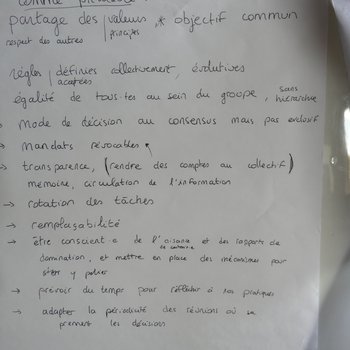 comme
partage des | valeurs, * objectif commun
respect des autres | principes
règles | définies collectivement, évolutives
acceptées
égalité de tous·tes au sein du groupe, sans hiérarchie
→ Mode de décision au consensus mais pas exclusif
→ mandats révocables
→ transparence, (rendre des comptes au collectif)
mémoire, circulation de l'information
→ rotation des tâches
→ remplaçabilité
→ être conscient·e de l' et des rapports de
domination, et mettre en place des mécanismes pour
y palier
→ prévoir du temps pour réfléchir à nos pratiques
→ adapter la périodicité des réunions où se
prennent les décisions